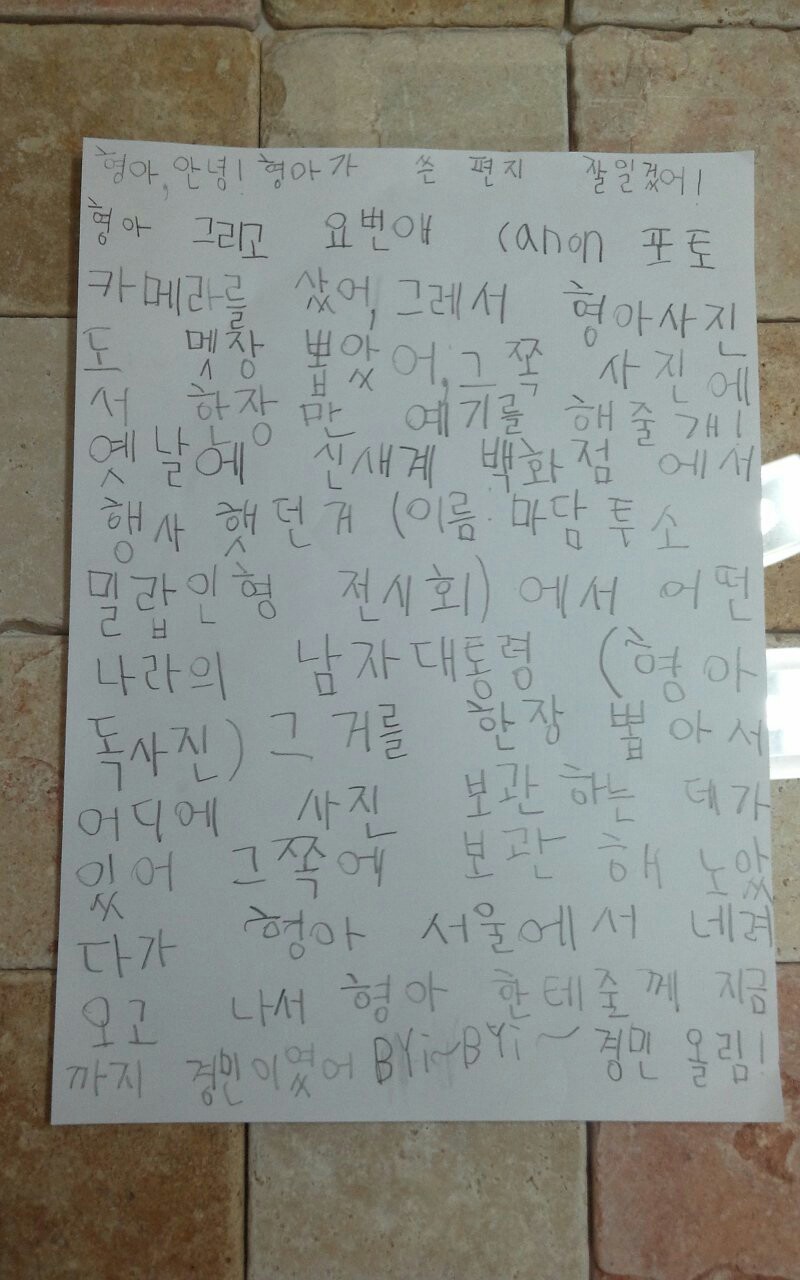 형아, 안녕! 형아가 쓴 편지 잘일겄어!
형아 그리고 요번애 Canon 포토
카메라를 샀어, 그레서 형아사진
도 몟장 뽑았어, 그쪽 사진에
서 한장만 예기를 해줄개!
옛날에 신새계 백화점에서
행사 햇던거 (이름: 마담투소
밀랍인형 전시회) 에서 어떤
나라의 남자대통령 (형아
독사진) 그거를 한장 뽑아서
어디에 사진 보관하는 데가
있어 그쪽에 보관 해 노았
다가 형아 서울에서 네려
오고 나서 형아 한테줄께 지금
까지 경민이였어 BYi~BYi~ 경민 올림!